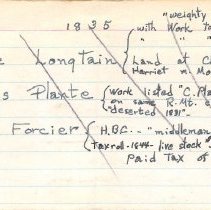 "weighty
1835
with Work to
" "
Longtain { Land at Ch
Harriet m. Mo
s Plante { Work listed "C. Pla
on same R. Mt. e
"deserted 1831".
Forcier { H.B.C. .. "middleman
Tax roll-1844- live stock
Paid Tax of